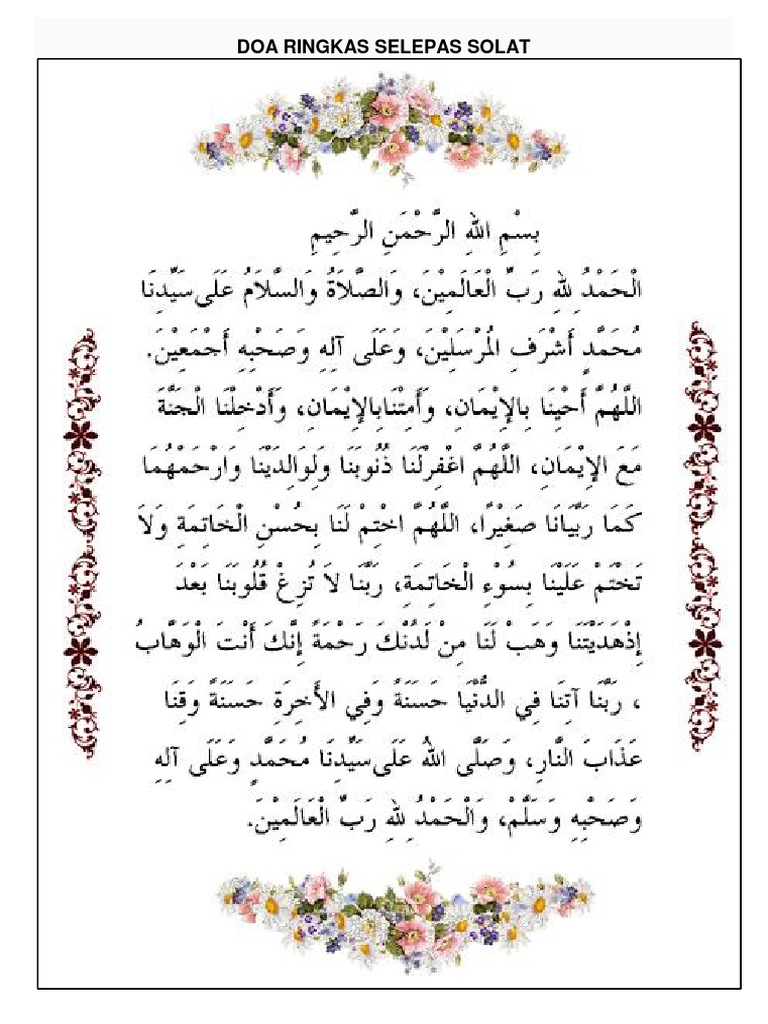 DOA RINGKAS SELEPAS SOLAT
بِسْمِ اللهِ الرَّحْمَنِ الرَّحِيمِ
الْحَمْدُ لِلهِ رَبِّ الْعَالَمِيْنَ، وَالصَّلاَةُ وَالسَّلاَمُ عَلَى سَيِّدِنَا
مُحَمَّدٍ أَشْرَفِ الْمُرْسَلِيْنَ، وَعَلَى آلِهِ وَصَحْبِهِ أَجْمَعِيْنَ.
اللَّهُمَّ أَحْيِنَا بِالإِيْمَانِ، وَأَمِتْنَابِالإِيْمَانِ، وَأَدْخِلْنَا الْجَنَّةَ
مَعَ الإِيْمَانِ، اللَّهُمَّ اغْفِرْلَنَا ذُنُوبَنَا وَلِوَالِدَيْنَا وَارْحَمْهُمَا
كَمَا رَبَّيَانَا صَغِيْرًا، اللَّهُمَّ اخْتِمْ لَنَا بِحُسْنِ الْخَاتِمَةِ وَلاَ
تَخْتِمْ عَلَيْنَا بِسُوْءِ الْخَاتِمَةِ، رَبَّنَا لاَ تُزِغْ قُلُوبَنَا بَعْدَ
إِذْهَدَيْتَنَا وَهَبْ لَنَا مِنْ لَدُنْكَ رَحْمَةً إِنَّكَ أَنْتَ الْوَهَّابُ
، رَبَّنَا آتِنَا فِي الدُّنْيَا حَسَنَةً وَفِي الأَخِرَةِ حَسَنَةً وَقِنَا
عَذَابَ النَّارِ، وَصَلَّى اللهُ عَلَى سَيِّدِنَا مُحَمَّدٍ وَعَلَى آلِهِ
وَصَحْبِهِ وَسَلَّمْ، وَالْحَمْدُ لِلهِ رَبِّ الْعَالَمِيْنَ.